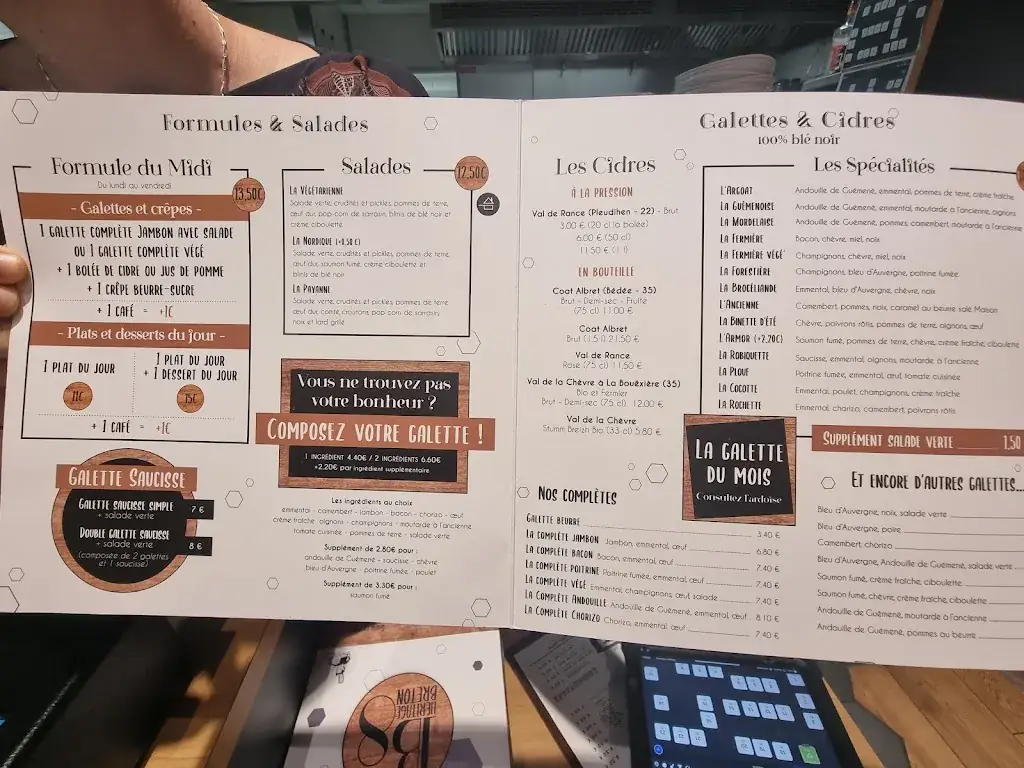 Formules & Salades
Formule du Midi
Du lundi au vendredi
13,50€
- Galettes et crêpes -
1 galette complète Jambon avec salade
ou 1 galette complète végé
+ 1 bolée de cidre ou jus de pomme
+ 1 crêpe beurre-sucre
+ 1 café = +1€
- Plats et desserts du jour -
1 plat du jour
11€
1 plat du jour
+ 1 dessert du jour
15€
+ 1 café = +1€
Galette Saucisse
Galette saucisse simple
+ salade verte
7 €
Double galette saucisse
+ salade verte
(composée de 2 galettes
et 1 saucisse)
8 €
Salades
12,50€
La Végétarienne
Salade verte, crudités et pickles, pommes de terre,
œuf dur, pop corn de sarrasin, blinis de blé noir et
crème ciboulette
La Nordique (+0,50 €)
Salade verte, crudités et pickles, pommes de terre,
œuf dur, saumon fumé, crème ciboulette et
blinis de blé noir
La Paysanne
Salade verte, crudités et pickles, pommes de terre
œuf dur, comté, croutons, pop corn de sarrasin,
noix et lard grillé
Vous ne trouvez pas
votre bonheur ?
Composez votre galette !
1 ingrédient 4.40€ / 2 ingrédients 6.60€
+2.20€ par ingrédient supplémentaire
Les ingrédients au choix
emmental - camembert - jambon - bacon - chorizo - œuf
crème fraîche - oignons - champignons - moutarde à l'ancienne
tomate cuisinée - pommes de terre - salade verte
Supplément de 2.80€ pour :
andouille de Guémené - saucisse - chèvre
bleu d'Auvergne - poitrine fumée - poulet
Supplément de 3.30€ pour :
saumon fumé
Galettes & Cidres
100% blé noir
Les Cidres
À la pression
Val de Rance (Pleudihen - 22) - Brut
3.00 € (20 cl la bolée)
6.00 € (50 cl)
11.50 € (1 l)
En bouteille
Coat Albret (Bédée - 35)
Brut - Demi-sec - Fruité
(75 cl) 11.00 €
Coat Albret
Brut (1.5 l) 21.50 €
Val de Rance
Rosé (75 cl) 11.50 €
Val de la Chèvre à La Bouëxière (35)
Bio et Fermier
Brut - Demi-sec (75 cl) 12.00 €
Val de la Chèvre
Stumm Breizh Bio (33 cl) 5.80 €
Les Spécialités
L'Argoat Andouille de Guémené, emmental, pommes de terre, crème fraîche
La Guémenoise Andouille de Guémené, emmental, moutarde à l'ancienne, oignons
La Mordelaise Andouille de Guémené, pommes, camembert, moutarde à l'ancienne
La Fermière Bacon, chèvre, miel, noix
La Fermière végé Champignons, chèvre, miel, noix
La Forestière Champignons, bleu d'Auvergne, poitrine fumée
La Brocéliande Emmental, bleu d'Auvergne, chèvre, noix
L'Ancienne Camembert, pommes, noix, caramel au beurre salé Maison
La Binette d'été Chèvre, poivrons rôtis, pommes de terre, oignons, œuf
L'Armor (+2,20€) Saumon fumé, pommes de terre, chèvre, crème fraîche, ciboulette
La Robiquette Saucisse, emmental, oignons, moutarde à l'ancienne
La Plouf Poitrine fumée, emmental, œuf, tomate cuisinée
La Cocotte Emmental, poulet, champignons, crème fraîche
La Rochette Emmental, chorizo, camembert, poivrons rôtis
Supplément salade verte 1,50
La galette
du mois
Consultez l'ardoise
Nos complètes
Galette beurre 3.40 €
La complète jambon Jambon, emmental, œuf 6.80 €
La complète bacon Bacon, emmental, œuf 7.40 €
La complète poitrine Poitrine fumée, emmental, œuf 7.40 €
La complète végé Emmental, champignons, œuf, salade 7.40 €
La complète andouille Andouille de Guémené, emmental, œuf 8.10 €
La complète chorizo Chorizo, emmental, œuf 7.40 €
Et encore d'autres galettes...
Bleu d'Auvergne, noix, salade verte
Bleu d'Auvergne, poire
Camembert, chorizo
Bleu d'Auvergne, Andouille de Guémené, salade verte
Saumon fumé, crème fraîche, ciboulette
Saumon fumé, chèvre, crème fraîche, ciboulette
Andouille de Guémené, moutarde à l'ancienne
Andouille de Guémené, pommes au beurre
Héritage
Breton